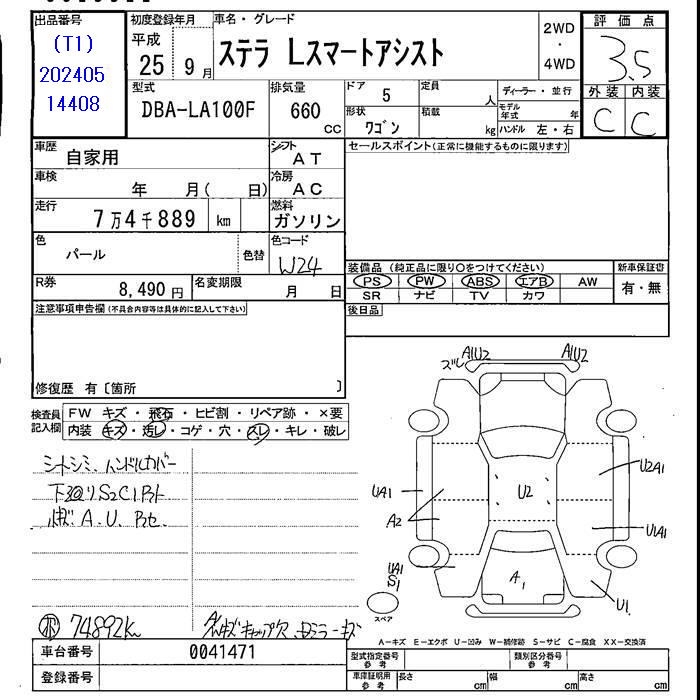 出品番号
(T1)
202405
14408
初度登録年月
平成
25 9 月
車名・グレード
ステラ Lスマートアシスト
2WD
・
4WD
評価点
3.5
外装 内装
C C
型式
DBA-LA100F
排気量
660
cc
ドア 5
形状
ワゴン
定員
人
積載
kg
ディーラー・並行
モデル年式 年
ハンドル 左・右
車歴
自家用
シフト
AT
車検
年 月( 日)
冷房
AC
走行
7万4千889 km
燃料
ガソリン
色
パール
色替
色コード
W24
R券
8,490 円
名変期限
月 日
セールスポイント(正常に機能するものに限ります)
装備品 (純正品に限り○をつけてください)
PS PW ABS エアB AW
SR ナビ TV カワ
新車保証書
有・無
後日品
注意事項申告欄(不具合内容等は具体的に記入して下さい)
修復歴 有〔箇所 〕
検査員記入欄
FW キズ・飛石・ヒビ割・リペア跡・×要
内装 キズ・汚レ・コゲ・穴・スレ・キレ・破レ
シートシミ、ハンドルカバー
下廻りS2C1
A.U.
74892km
キャップ穴
車台番号 0041471
登録番号
ズレ A1U2 A1U2
U2A1
UA1
U2
A2
U1A1
UA1
S1
A1
U1
スペア
A-キズ E-エクボ U-凹み W-補修跡 S-サビ C-腐食 XX-交換済
型式指定番号
参考
類別区分番号
参考
車庫証明用
参考
長さ cm 幅 cm 高さ cm